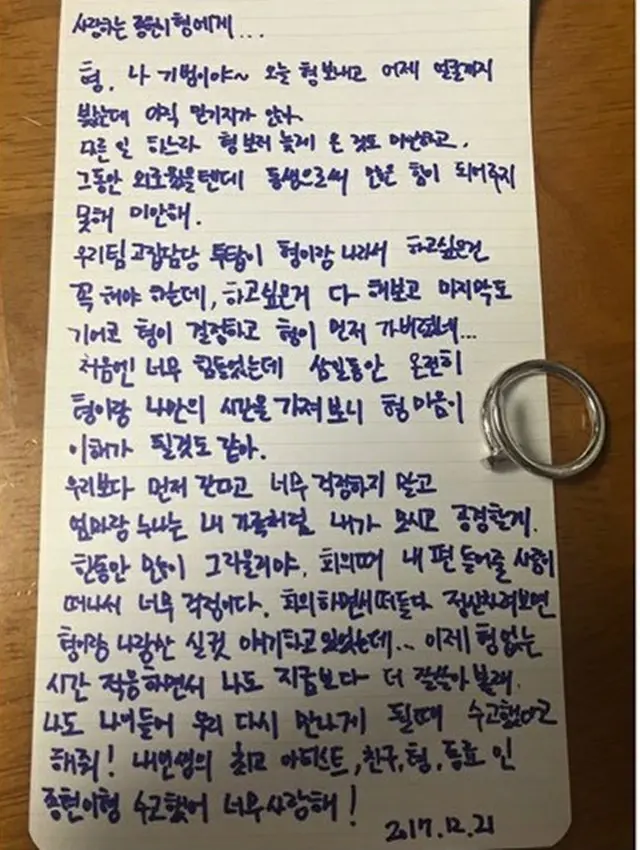 사랑하는 종현이형에게...
형. 나 기범이야~ 오늘 형 보내고 어제 얼굴까지
봤는데 아직 믿기지가 않아.
다른 일 하느라 형보러 늦게 온 것도 미안하고,
그동안 외로웠을텐데 동생으로써 많은 힘이 되어주지
못해 미안해.
우리팀 고집담당 투탑이 형이랑 나라서 하고싶은건
꼭 해야 하는데, 하고싶은거 다 해보고 마지막도
기어코 형이 결정하고 형이 먼저 가버렸네...
처음엔 너무 힘들었는데 삼일동안 온전히
형이랑 나만의 시간을 가져 보니 형 마음이
이해가 될것도 같아.
우리보다 먼저 간다고 너무 걱정하지 말고
엄마랑 누나는 내 가족처럼 내가 모시고 공경할게.
한동안 많이 그리울거야. 회의때 내 편 들어줄 사람이
떠나서 너무 걱정이다. 회의하면서 떠들다 정신차려보면
형이랑 나랑만 실컷 얘기하고 있었는데... 이제 형 없는
시간 적응하면서 나도 지금보다 더 잘살아 볼래.
나도 나이들어 우리 다시 만나게 될때 수고했다고
해줘! 내인생의 최고 아티스트, 친구, 형, 동료 인
종현이형 수고했어 너무 사랑해!
2017.12.21